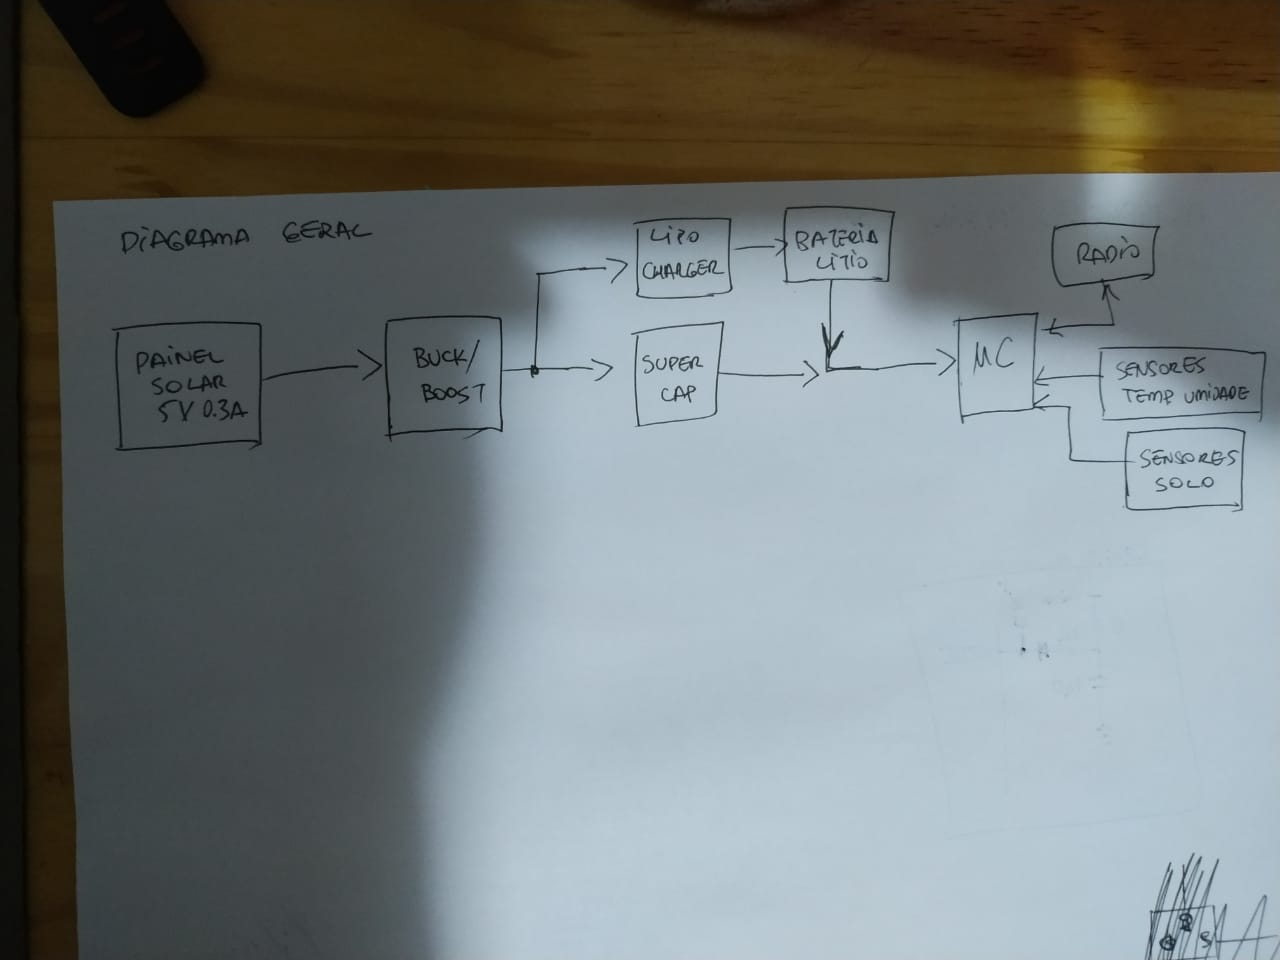 DIAGRAMA GERAL
PAINEL
SOLAR
5V 0.3A
BUCK/
BOOST
LIPO
CHARGER
BATERIA
LITIO
SUPER
CAP
MC
RADIO
SENSORES
TEMP UMIDADE
SENSORES
SOLO